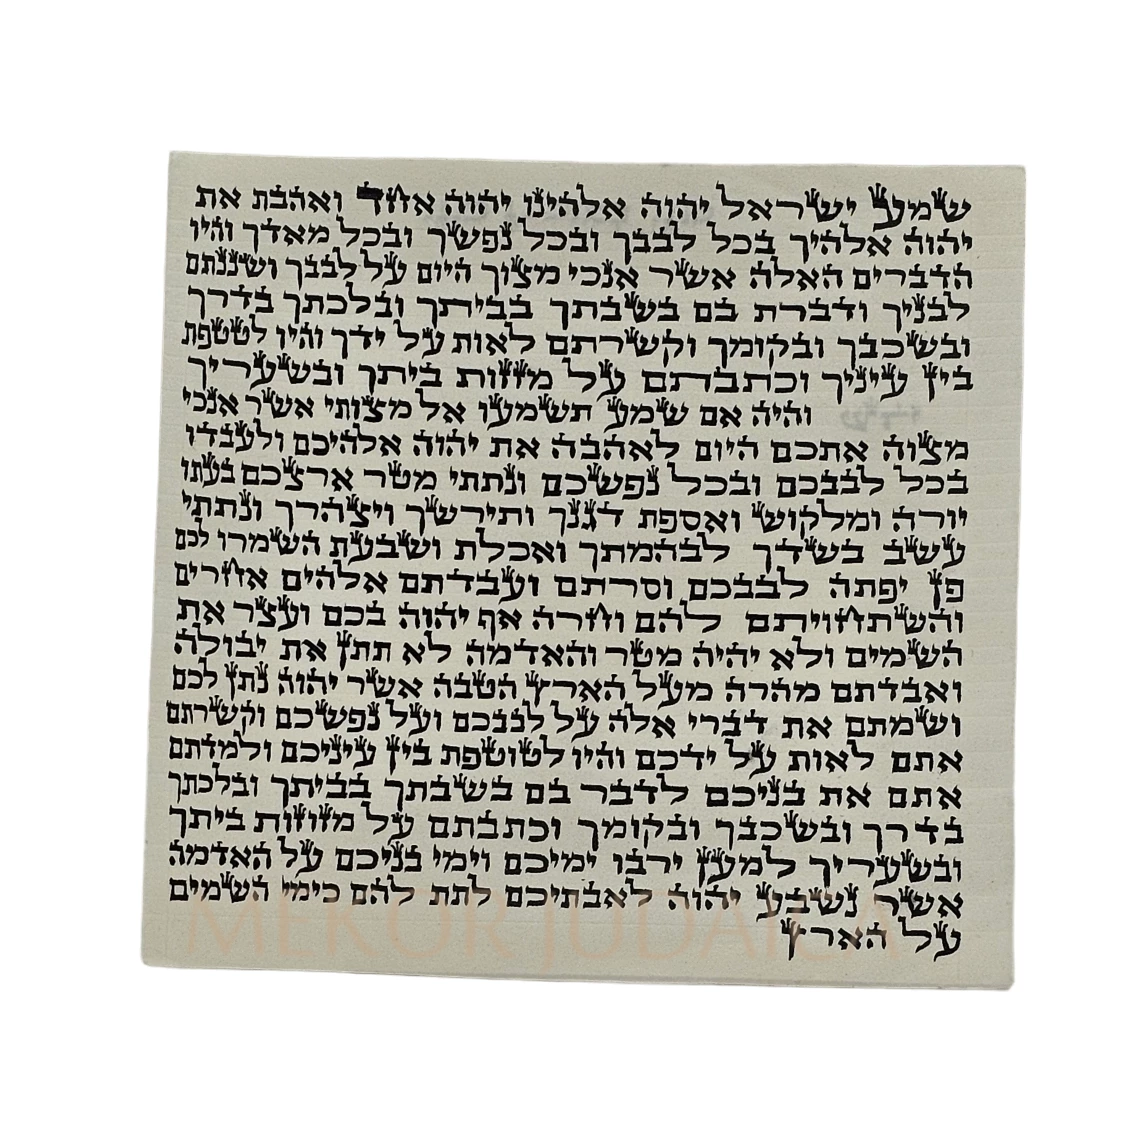 שמע ישראל יהוה אלהינו יהוה אחד ואהבת את
יהוה אלהיך בכל לבבך ובכל נפשך ובכל מאדך והיו
הדברים האלה אשר אנכי מצוך היום על לבבך ושננתם
לבניך ודברת בם בשבתך בביתך ובלכתך בדרך
ובשכבך ובקומך וקשרתם לאות על ידך והיו לטטפת
בין עיניך וכתבתם על מזזות ביתך ובשעריך
והיה אם שמע תשמעו אל מצותי אשר אנכי
מצוה אתכם היום לאהבה את יהוה אלהיכם ולעבדו
בכל לבבכם ובכל נפשכם ונתתי מטר ארצכם בעתו
יורה ומלקוש ואספת דגנך ותירשך ויצהרך ונתתי
עשב בשדך לבהמתך ואכלת ושבעת השמרו לכם
פן יפתה לבבכם וסרתם ועבדתם אלהים אחרים
והשתחויתם להם וחרה אף יהוה בכם ועצר את
השמים ולא יהיה מטר והאדמה לא תתן את יבולה
ואבדתם מהרה מעל הארץ הטבה אשר יהוה נתן לכם
ושמתם את דברי אלה על לבבכם ועל נפשכם וקשרתם
אתם לאות על ידכם והיו לטוטפת בין עיניכם ולמדתם
אתם את בניכם לדבר בם בשבתך בביתך ובלכתך
בדרך ובשכבך ובקומך וכתבתם על מזוזות ביתך
ובשעריך למען ירבו ימיכם וימי בניכם על האדמה
אשר נשבע יהוה לאבתיכם לתת להם כימי השמים
על הארץ
MEKOR JUDAICA